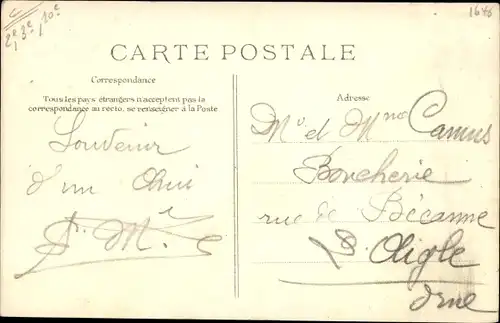 2e, 3e, 10e
1646
CARTE POSTALE
Correspondance
Tous les pays étrangers n'acceptent pas la
correspondance au recto, se renseigner à la Poste
Adresse
Souvenir
d'un Ami
Mr et Mme Camus
Boucherie
rue de Bécanne
L'Aigle
Orne